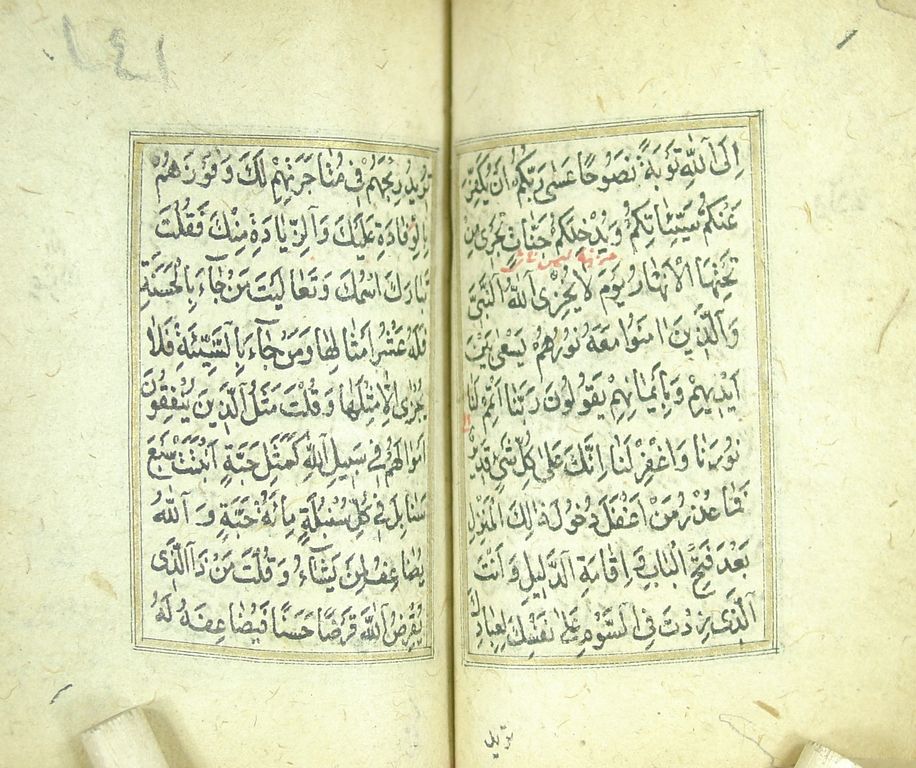 اِلَى اللّٰهِ تَوْبَةً نَصُوحًا عَسٰى رَبُّكُمْ اَنْ يُكَفِّرَ
عَنْكُمْ سَيِّئَاتِكُمْ وَيُدْخِلَكُمْ جَنَّاتٍ تَجْرِى مِنْ
تَحْتِهَا الْاَنْهَارُ يَوْمَ لَا يُخْزِى اللّٰهُ النَّبِىَّ
وَالَّذِينَ اٰمَنُوا مَعَهُ نُورُهُمْ يَسْعٰى بَيْنَ
اَيْدِيهِمْ وَبِاَيْمَانِهِمْ يَقُولُونَ رَبَّنَا اَتْمِمْ لَنَا
نُورَنَا وَاغْفِرْ لَنَا اِنَّكَ عَلٰى كُلِّ شَىْءٍ قَدِيرٌ
فَمَا عُذْرُ مَنْ اَغْفَلَ دُخُولَ ذٰلِكَ الْمَنْزِلِ
بَعْدَ فَتْحِ الْبَابِ وَاِقَامَةِ الدَّلِيلِ وَاَنْتَ
الَّذِى زِدْتَ فِى السَّوْمِ عَلٰى نَفْسِكَ لِعِبَادِكَ
تريد
تُرِيدُ رِبْحَهُمْ فِى مُتَاجَرَتِهِمْ لَكَ وَفَوْزَهُمْ
بِالْوِفَادَةِ عَلَيْكَ وَالزِّيَادَةِ مِنْكَ فَقُلْتَ
تَبَارَكَ اسْمُكَ وَتَعَالَيْتَ مَنْ جَاءَ بِالْحَسَنَةِ
فَلَهُ عَشْرُ اَمْثَالِهَا وَمَنْ جَاءَ بِالسَّيِّئَةِ فَلَا
يُجْزٰى اِلَّا مِثْلَهَا وَقُلْتَ مَثَلُ الَّذِينَ يُنْفِقُونَ
اَمْوَالَهُمْ فِى سَبِيلِ اللّٰهِ كَمَثَلِ حَبَّةٍ اَنْبَتَتْ سَبْعَ
سَنَابِلَ فِى كُلِّ سُنْبُلَةٍ مِائَةُ حَبَّةٍ وَاللّٰهُ
يُضَاعِفُ لِمَنْ يَشَاءُ وَقُلْتَ مَنْ ذَا الَّذِى
يُقْرِضُ اللّٰهَ قَرْضًا حَسَنًا فَيُضَاعِفَهُ لَهُ